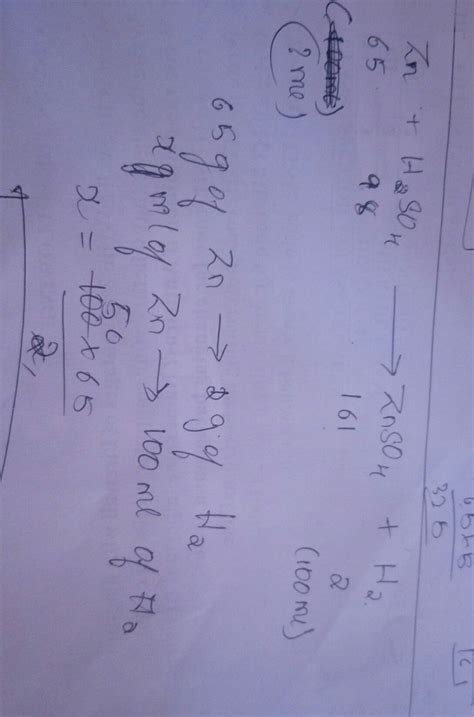 Zn + H2SO4 → ZnSO4 + H2
65 98 161 2
(100ml)
(? ml)
65g of Zn → 2g of H2
x ml of Zn → 100ml of H2
50
x = 100 x 65
2